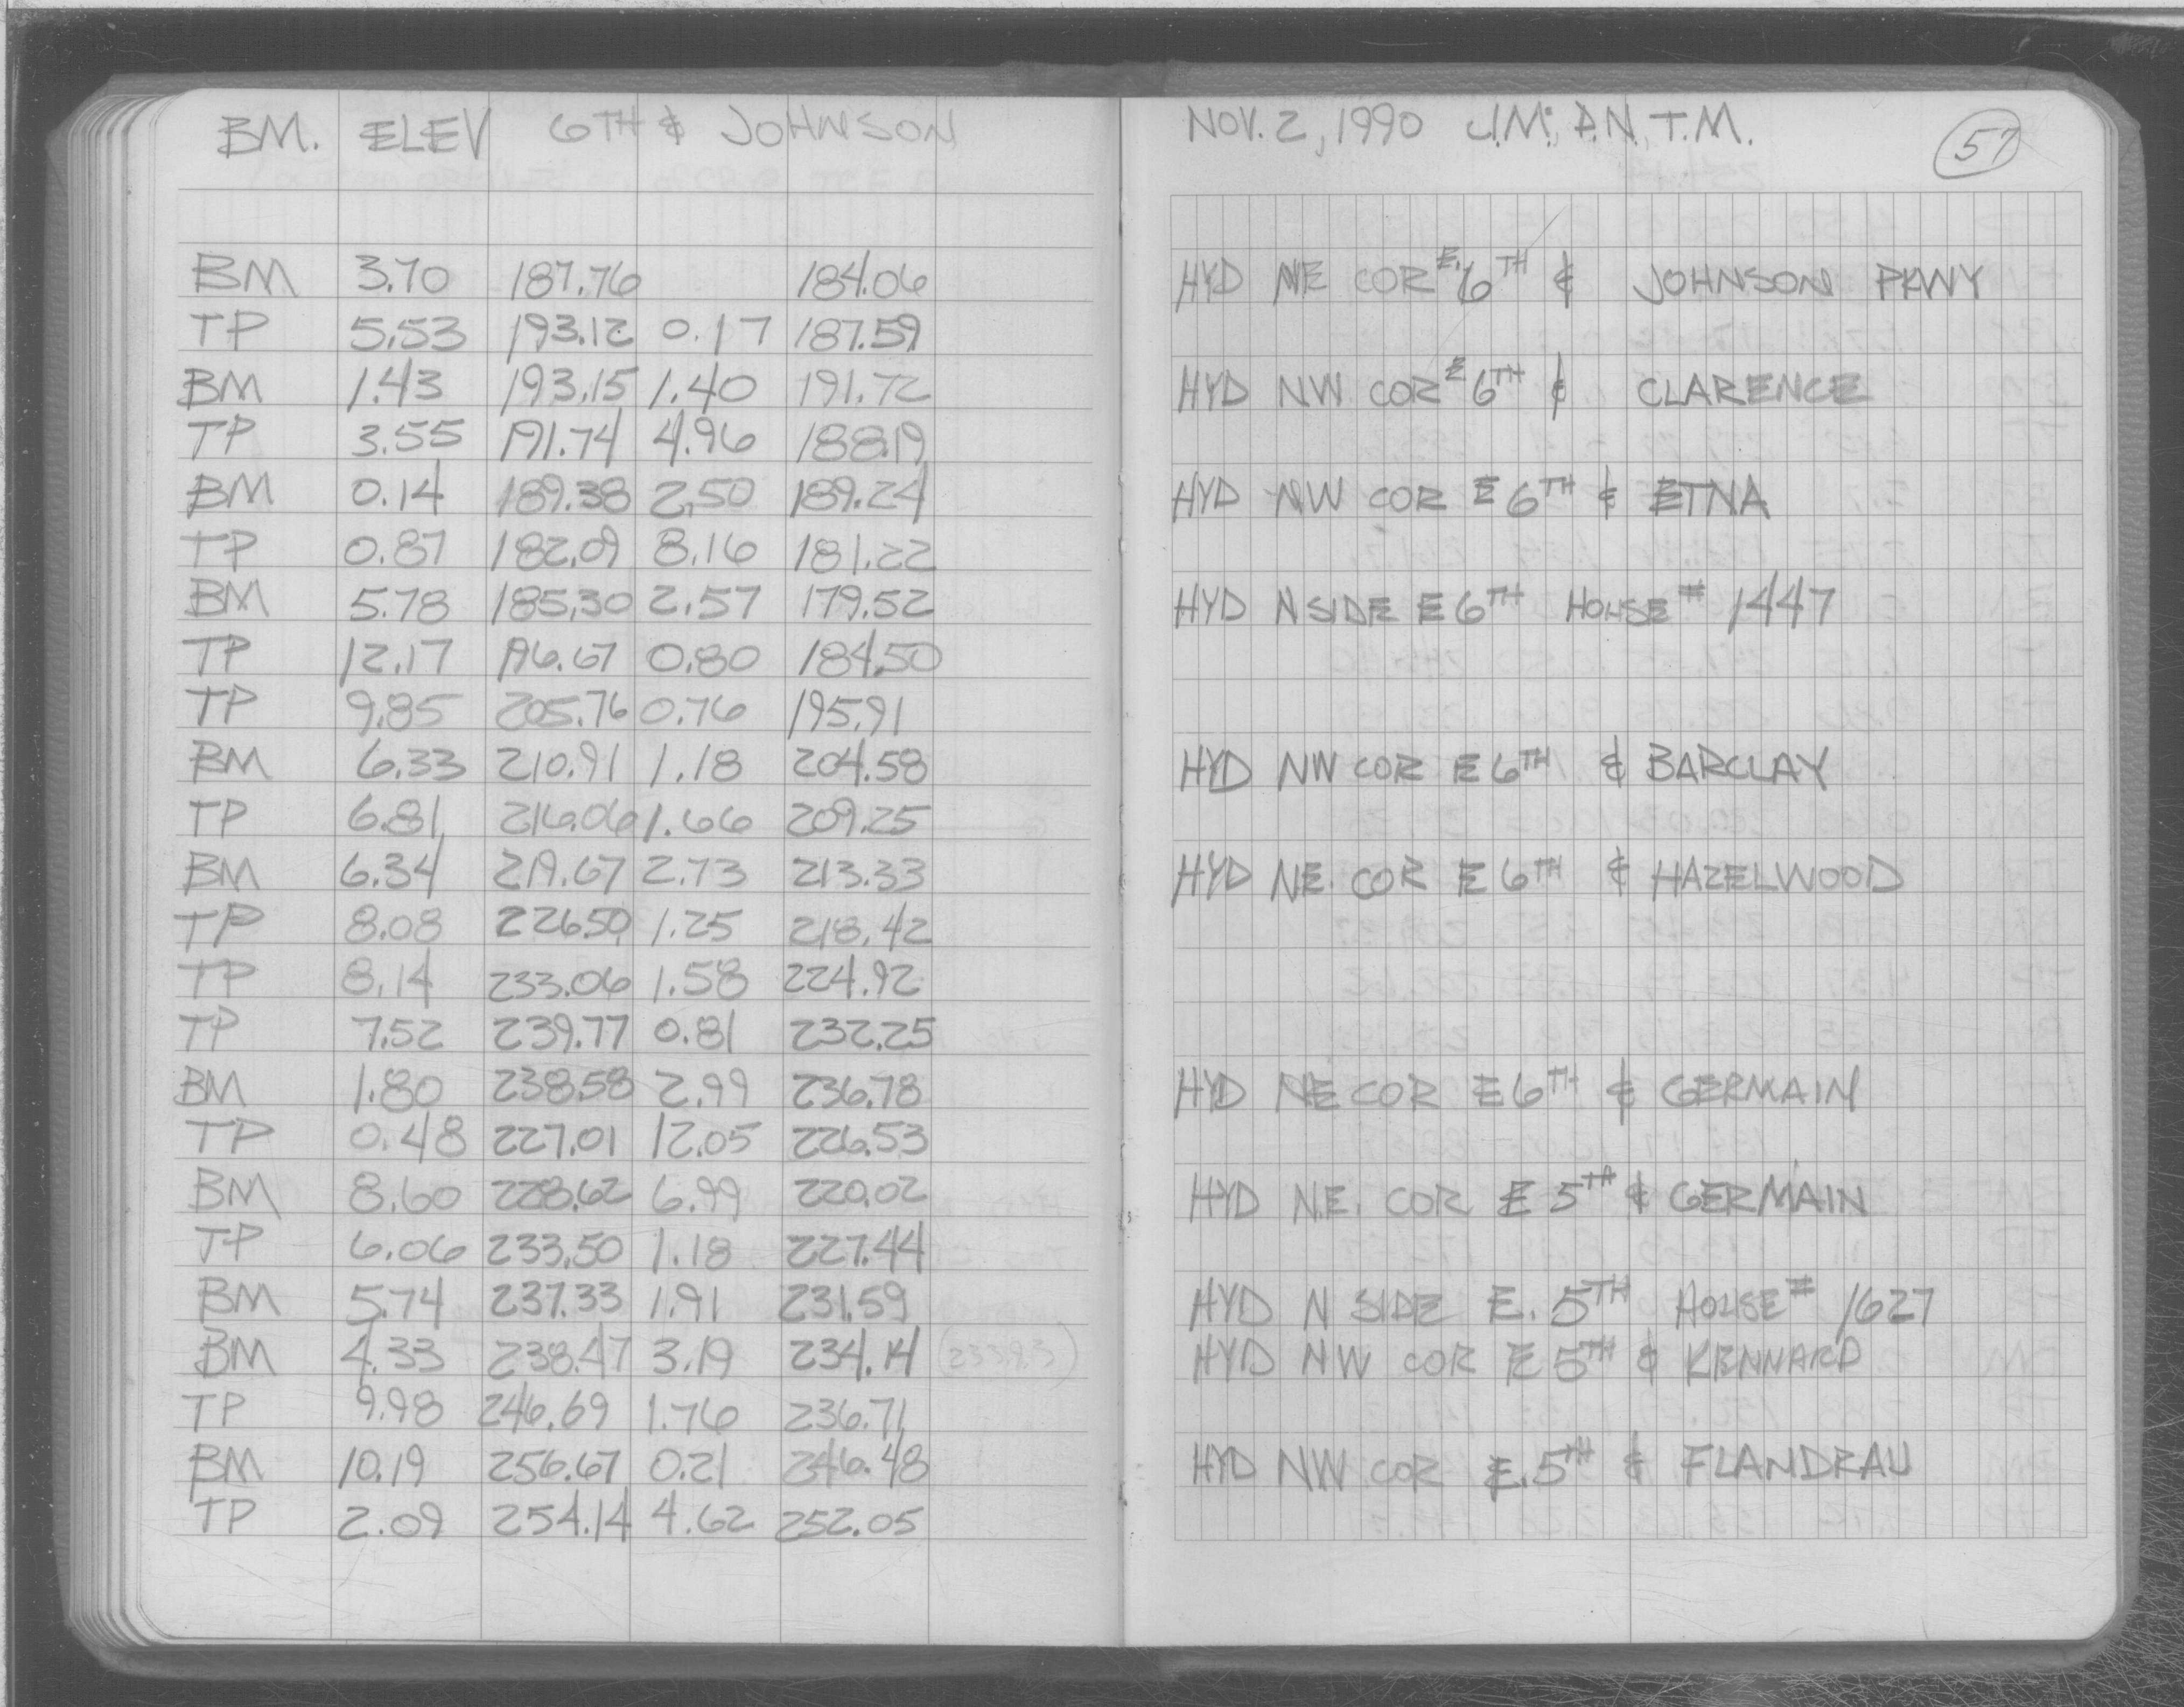 BM. ELEV 6TH & JOHNSON
BM 3.70 187.76 184.06
TP 5.53 193.12 0.17 187.59
BM 1.43 193.15 1.40 191.72
TP 3.55 191.74 4.96 188.19
BM 0.14 189.38 2.50 189.24
TP 0.87 182.09 8.16 181.22
BM 5.78 185.30 2.57 179.52
TP 12.17 196.67 0.80 184.50
TP 9.85 205.76 0.76 195.91
BM 6.33 210.91 1.18 204.58
TP 6.81 216.06 1.66 209.25
BM 6.34 219.67 2.73 213.33
TP 8.08 226.50 1.25 218.42
TP 8.14 233.06 1.58 224.92
TP 7.52 239.77 0.81 232.25
BM 1.80 238.58 2.99 236.78
TP 0.48 227.01 12.05 226.53
BM 8.60 228.62 6.99 220.02
TP 6.06 233.50 1.18 227.44
BM 5.74 237.33 1.91 231.59
BM 4.33 238.47 3.19 234.14 (233.93)
TP 9.98 246.69 1.76 236.71
BM 10.19 256.67 0.21 246.48
TP 2.09 254.14 4.62 252.05
NOV. 2, 1990 J.M., D.N., T.M.
57
HYD NE COR E. 6TH & JOHNSON PKWY
HYD NW COR E 6TH & CLARENCE
HYD NW COR E 6TH & ETNA
HYD N SIDE E 6TH HOUSE # 1447
HYD NW COR E 6TH & BARCLAY
HYD NE. COR E 6TH & HAZELWOOD
HYD NE COR E 6TH & GERMAIN
HYD N.E. COR E 5TH & GERMAIN
HYD N SIDE E. 5TH HOUSE # 1627
HYD NW COR E 5TH & KENNARD
HYD NW COR E. 5TH & FLANDRAU